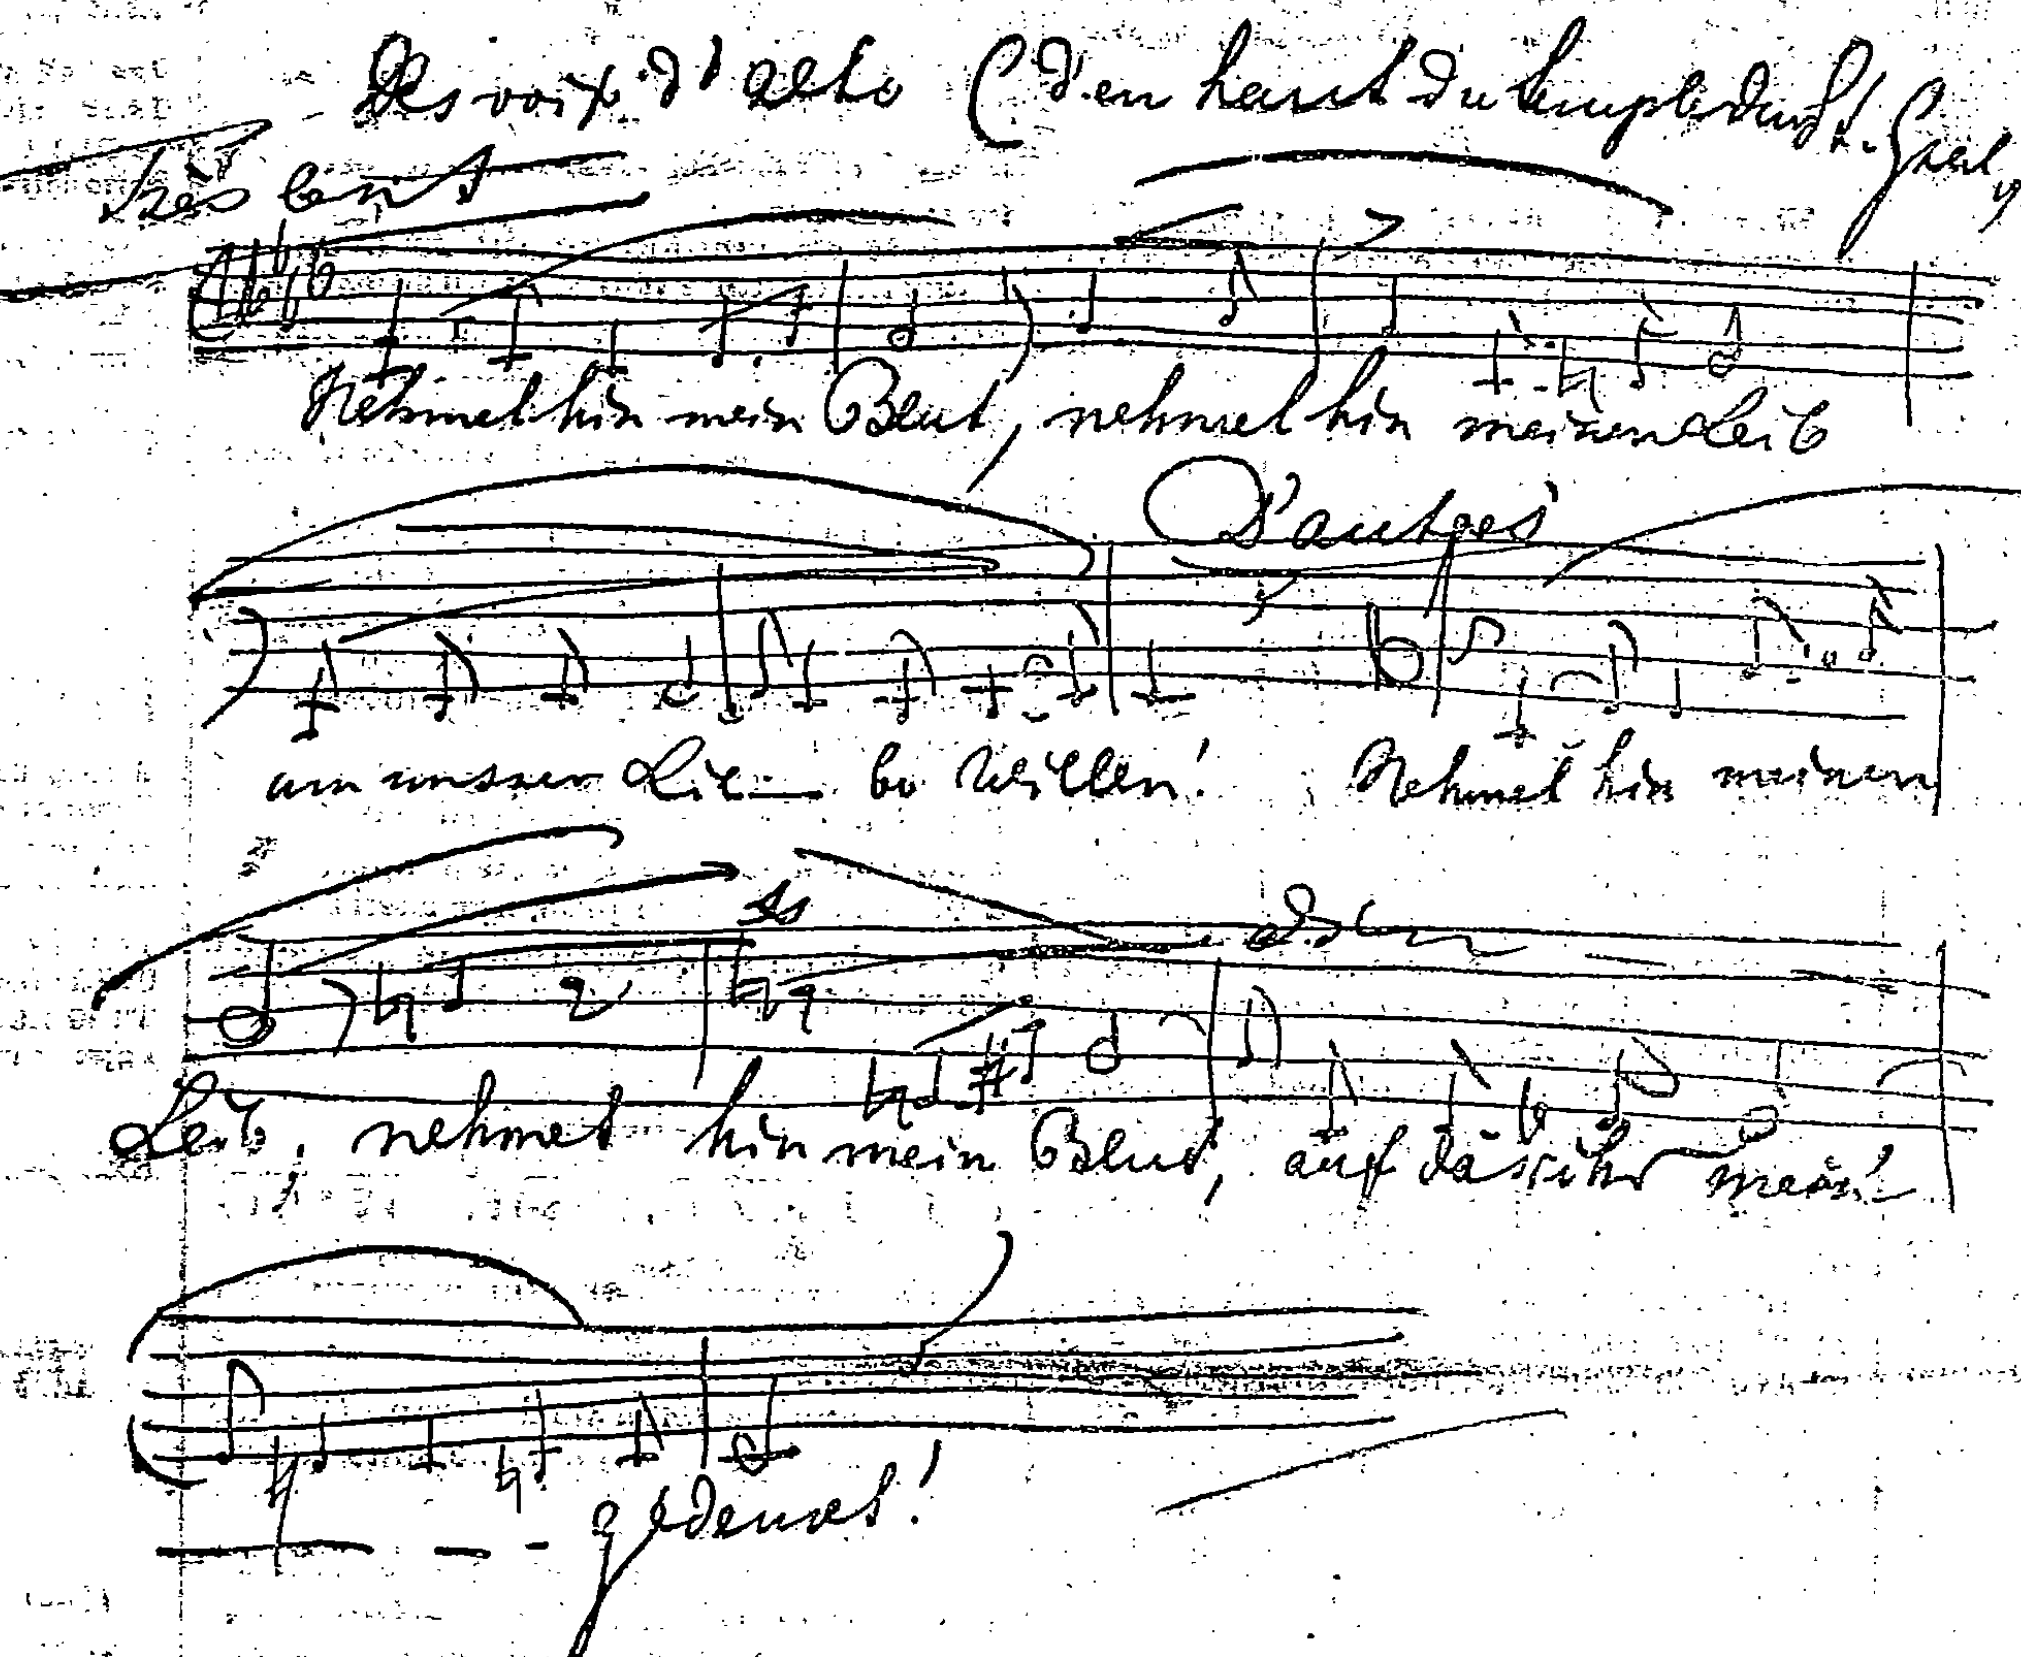 Des voix d'alto (d'en haut du temple du St. Graal,
Très lent
Nehmet hin mein Blut, nehmet hin meinen Leib
D'autres
um unsrer Lie— be Willen! Nehmet hin meinen
Leib, nehmet hin mein Blut, auf dass ihr mein'
gedenket!